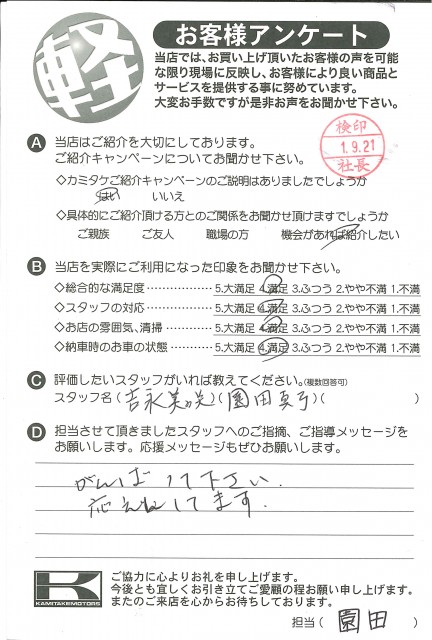 軽
お客様アンケート
当店では、お買い上げ頂いたお客様の声を可能
な限り現場に反映し、お客様により良い商品と
サービスを提供する事に努めています。
大変お手数ですが是非お声をお聞かせ下さい。
検印
1.9.21
社長
A 当店はご紹介を大切にしております。
ご紹介キャンペーンについてお聞かせ下さい。
◇カミタケご紹介キャンペーンのご説明はありましたでしょうか
はい いいえ
◇具体的にご紹介頂ける方とのご関係をお聞かせ頂けますでしょうか
ご親族 ご友人 職場の方 機会があれば紹介したい
B 当店を実際にご利用になった印象をお聞かせ下さい。
◇総合的な満足度 ⋯⋯⋯⋯⋯ 5.大満足 4.満足 3.ふつう 2.やや不満 1.不満
◇スタッフの対応 ⋯⋯⋯⋯⋯ 5.大満足 4.満足 3.ふつう 2.やや不満 1.不満
◇お店の雰囲気、清掃 ⋯⋯⋯ 5.大満足 4.満足 3.ふつう 2.やや不満 1.不満
◇納車時のお車の状態 ⋯⋯⋯ 5.大満足 4.満足 3.ふつう 2.やや不満 1.不満
C 評価したいスタッフがいれば教えてください。(複数回答可)
スタッフ名(吉永美咲)(園田真弓)( )
D 担当させて頂きましたスタッフへのご指摘、ご指導メッセージを
お願いします。応援メッセージもぜひお願いします。
がんばって下さい.
応えんしてます.
K
KAMITAKEMOTORS
ご協力に心よりお礼を申し上げます。
今後とも宜しくお引き立てご愛顧の程お願い申し上げます。
またのご来店を心からお待ちしております。
担当( 園田 )